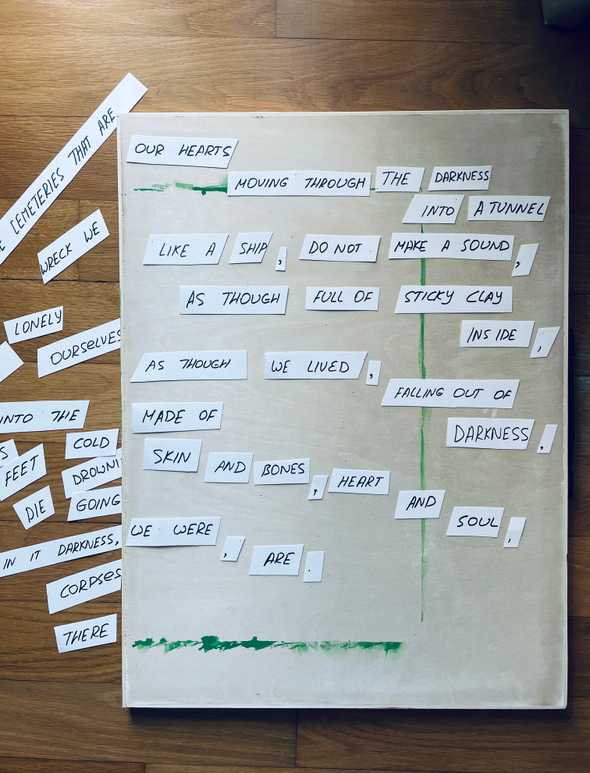 OUR HEARTS
MOVING THROUGH THE DARKNESS
INTO A TUNNEL
LIKE A SHIP, DO NOT MAKE A SOUND,
AS THOUGH FULL OF STICKY CLAY
INSIDE,
AS THOUGH WE LIVED,
FALLING OUT OF
MADE OF DARKNESS.
SKIN AND BONES, HEART
AND SOUL,
WE WERE, ARE.
CEMETERIES THAT ARE
WRECK WE
LONELY
OURSELVES
INTO THE
COLD
FEET
DROWNI
DIE
GOING
IN IT DARKNESS,
CORPSES
THERE